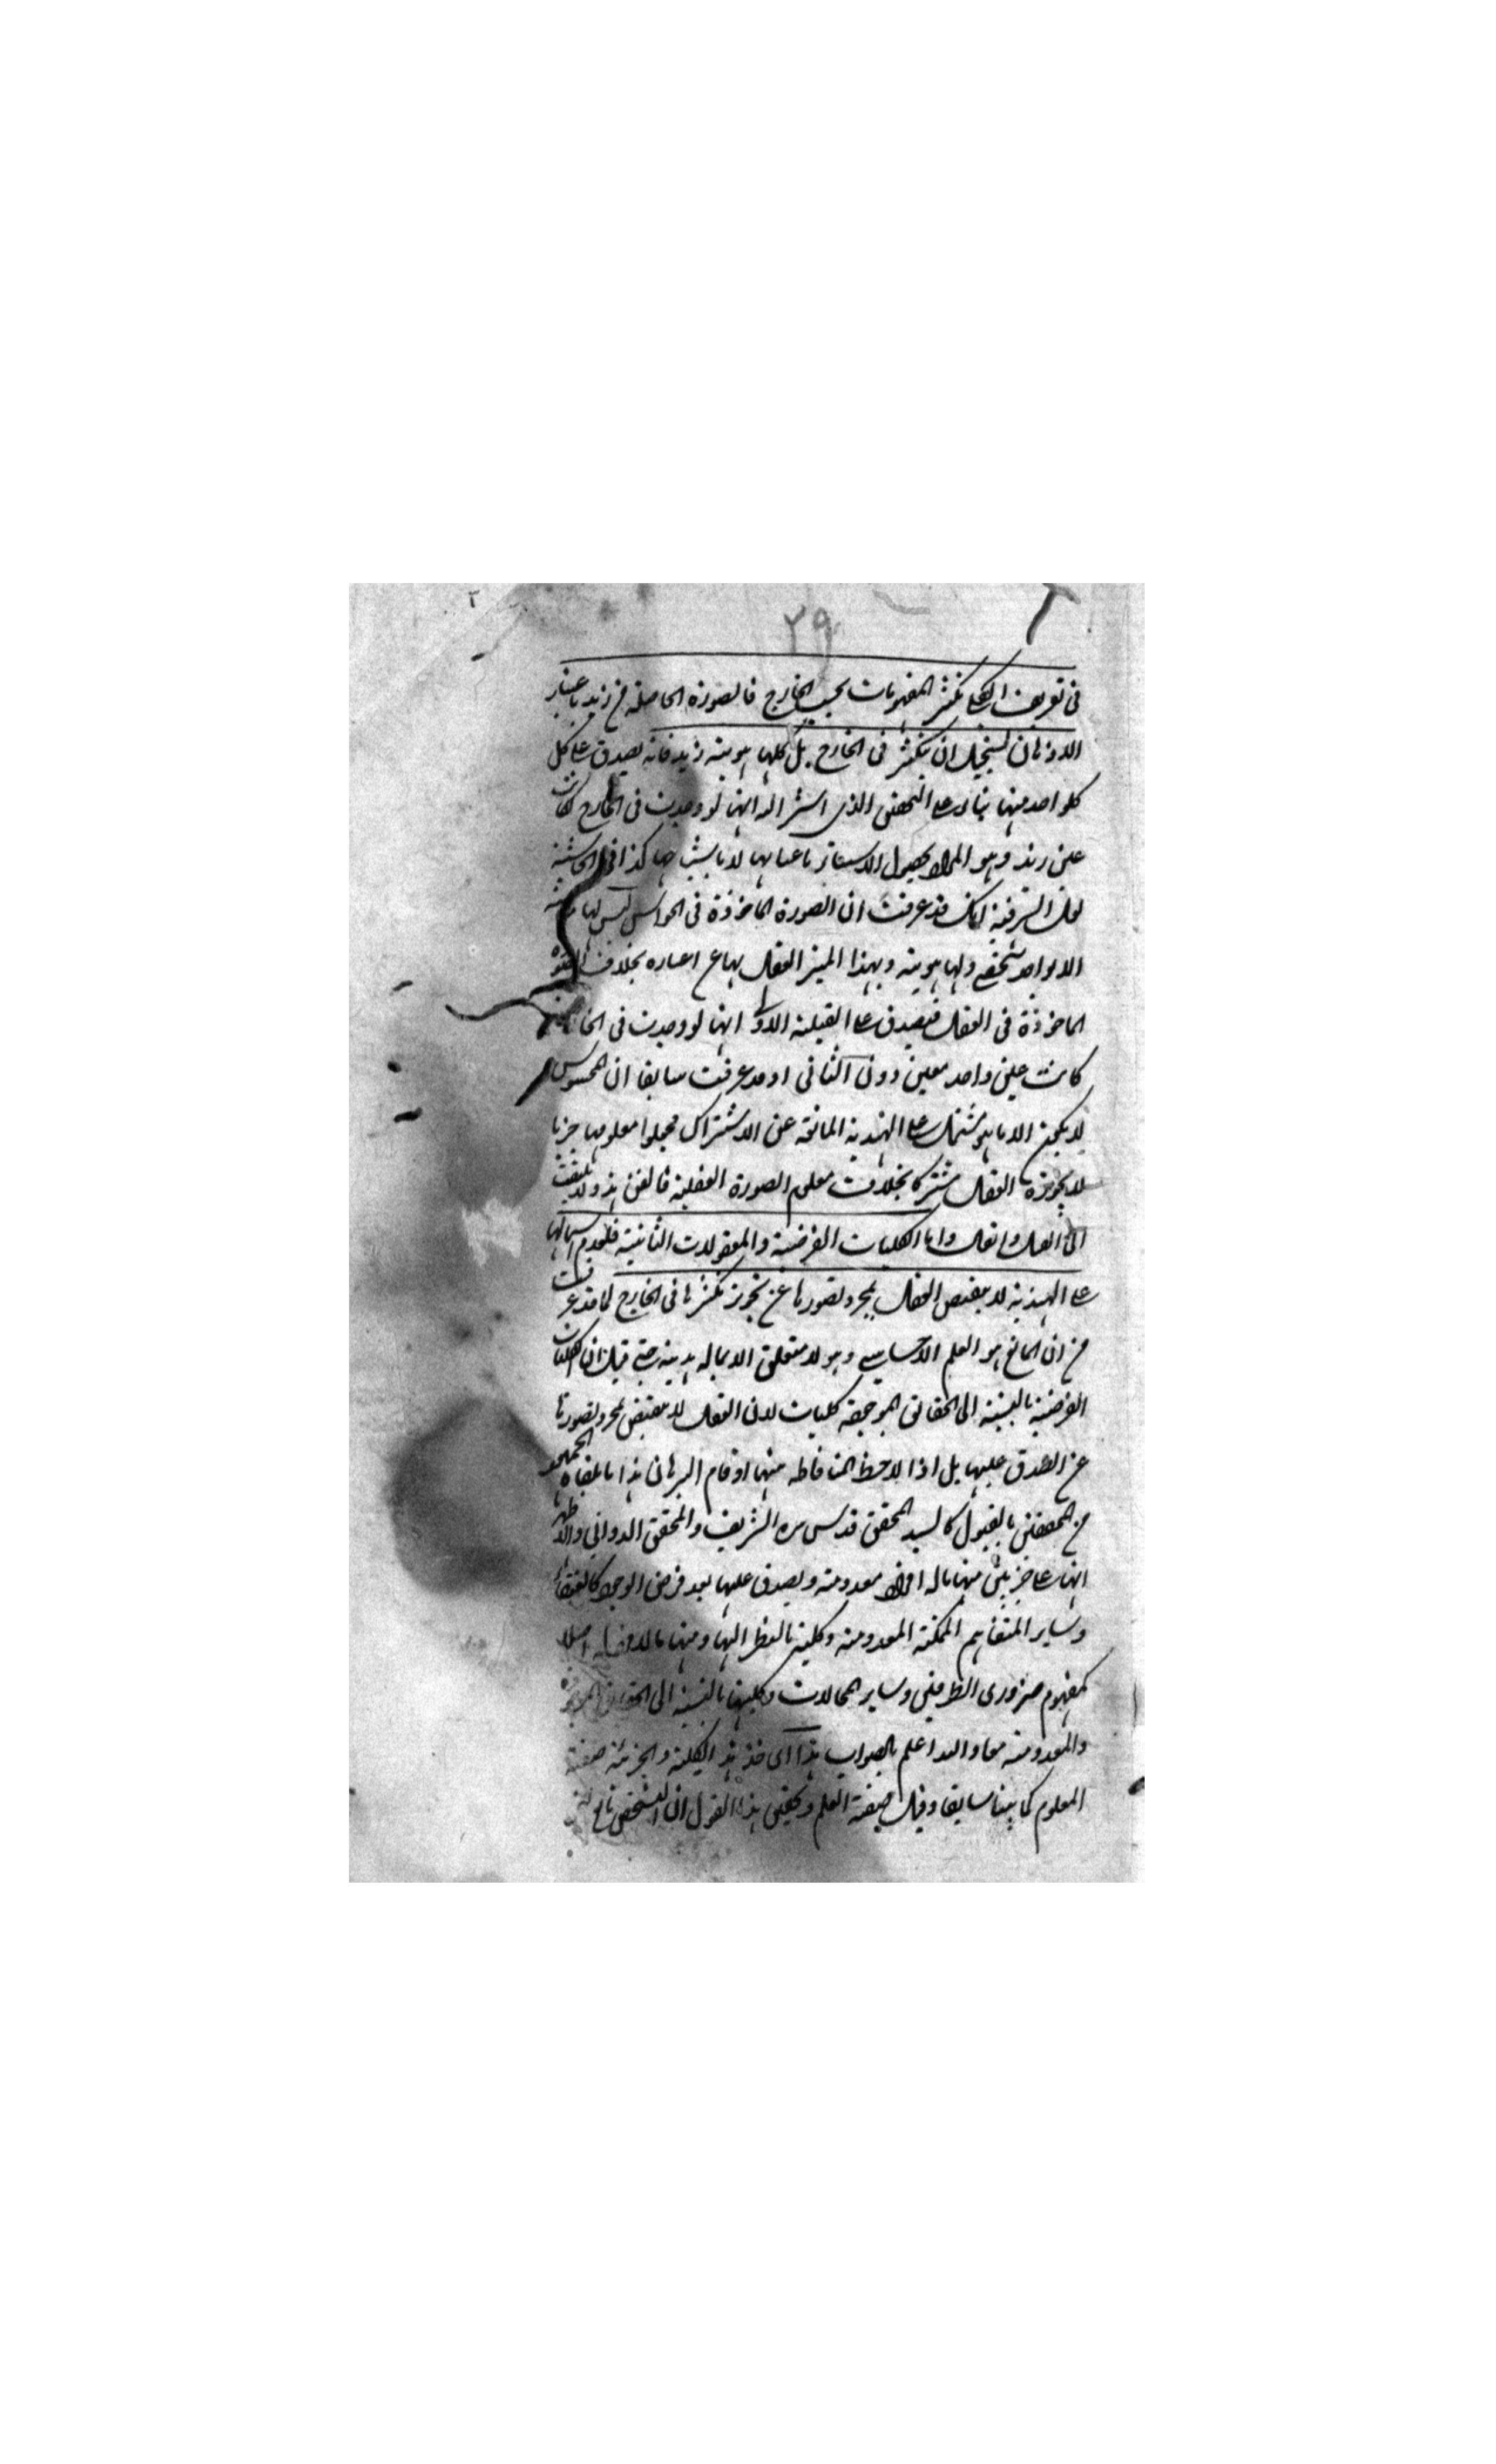 ٢٩
فى تعريف الكلى تكثر المفهومات بحسب الخارج فالصورة الحاصلة من زيد باعتبار
الاذهان يستحيل ان يتكثر فى الخارج بل كلها هوية زيد فانه يصدق على كل
كلواحد منها بناء على التحقيق الذى اشير اليه انها لو وجدت فى الخارج كانت
عين زيد وهو المراد بحصول الاشياء باعيانها لا باشباحها كذا فى الحاشية
لعل السر فيه انك قد عرفت ان الصورة الماخوذة فى الحواس ليس لها
الا بواحد شخصى ولها هوية وبهذا العقل بها عن اغياره بخلاف الصورة
الماخوذة فى العقل فيصدق على القبيلة الاولى انها لو وجدت فى الخارج
كانت عين واحد معين دون الثانى او قد عرفت سابقا ان المحسوس
لا يكون الا ما هو مشتمل على الهذية المانعة عن الاشتراك فجعلوا معلومها جزئيا
لا يجوزه العقل مشتركا بخلاف معلوم الصورة العقلية ولا تلتفت
الى واما الكليات الفرضية والمعقولات الثانية فلعدم اشتمالها
على الهذية لا ينقبض العقل بمجرد تصورها عن تجويز تكثرها فى الخارج لما قد عرفت
من ان المانع هو العلم الاحساسى وهو لا يتعلق الا بماله هذية حتى قيل ان الكليات
الفرضية بالنسبة الى الحقائق الموجودة كليات لان العقل لا ينقبض بمجرد تصورها
عن الصدق عليها بل اذا لاحظ المنافاة منها او قام البرهان هذا ما تلقاه الجمهور
من المحققين بالقبول كالسيد المحقق قدس سره الشريف والمحقق الدوانى والاظهر
انها على ضربين منها ماله افراد معدومة ويصدق عليها بعد فرض الوجود كالعنقاء
وسائر المفاهيم الممكنة المعدومة وكلية بالنظر اليها ومنها ما لا افراد له اصلا
كمفهوم ضرورى الطرفين وسائر المحالات وكليتها بالنسبة الى الحقائق الموجودة
والمعدومة معا والله اعلم بالصواب هذا اى خذ هذا الكلية والجزئية صفة
المعلوم كما بينا سابقا وقيل صفة العلم وتحقيق هذا القول ان التشخص